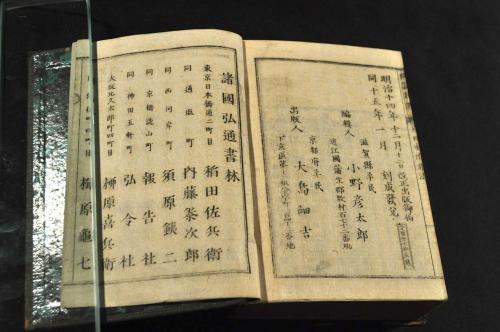 明治十四年十二月十二日改正出版御届
同十五年一月刻成發兌
滋賀縣平民
編輯人 小野彦太郎
近江國蒲生郡牧村百二十二番地
京都府平民
出版人 大島細吉
諸國弘通書林
東京日本橋通二町目 稻田佐兵衛
同通旅町 内藤泰次郎
同西河岸町 須原鐵二
同京橋瀧山町 報告社
同神田五軒町 弘令社
大阪北久太郎町四町目 柳原喜兵衛
柳原龜七